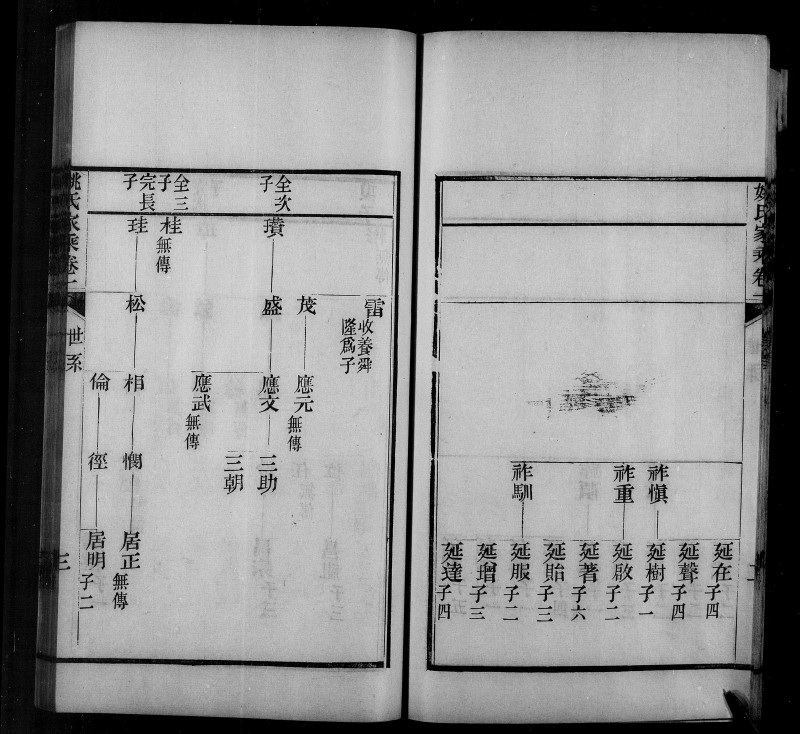 姚氏家乘卷一
二
祚愼
祚重
祚馴
延在 子四
延聲 子四
延樹 子一
延啟 子二
延著 子六
延貽 子三
延服 子二
延璔 子三
延達 子四
雷 收養舜隆爲子
茂
應元 無傳
全次子
瓚
盛
應文
三助
三朝
應武 無傳
全三子
桂 無傳
完長子
珪
松
相
憫
居正 無傳
倫
徑
居明 子二
姚氏家乘卷一
世系
三